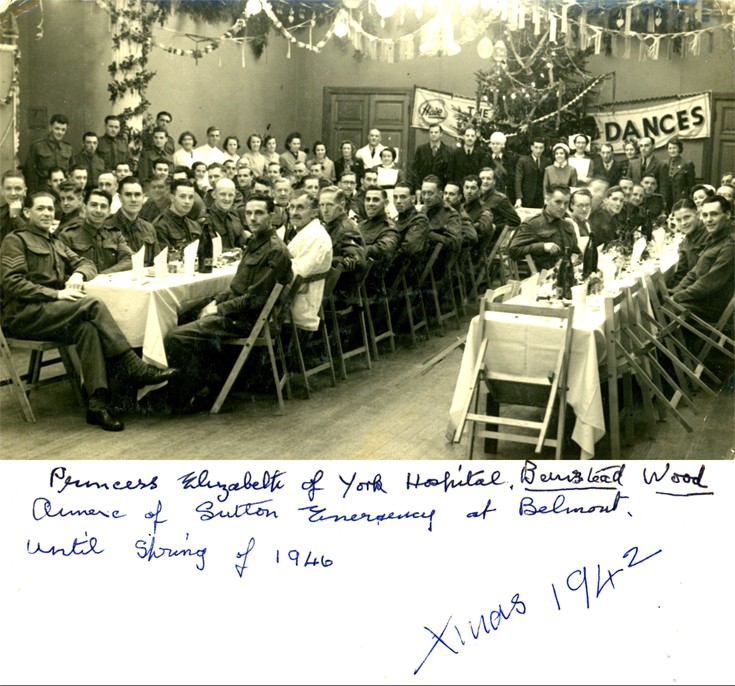 THE
DANCES
Princess Elizabeth of York Hospital, Banstead Wood
Annexe of Sutton Emergency at Belmont.
Until Spring of 1946
Xmas 1942